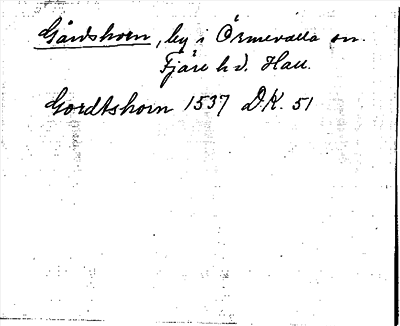 Gårdshorn, by i Örmevalla sn.
Fjäre hd. Hall.
Gordtshorn 1537 DK. 51